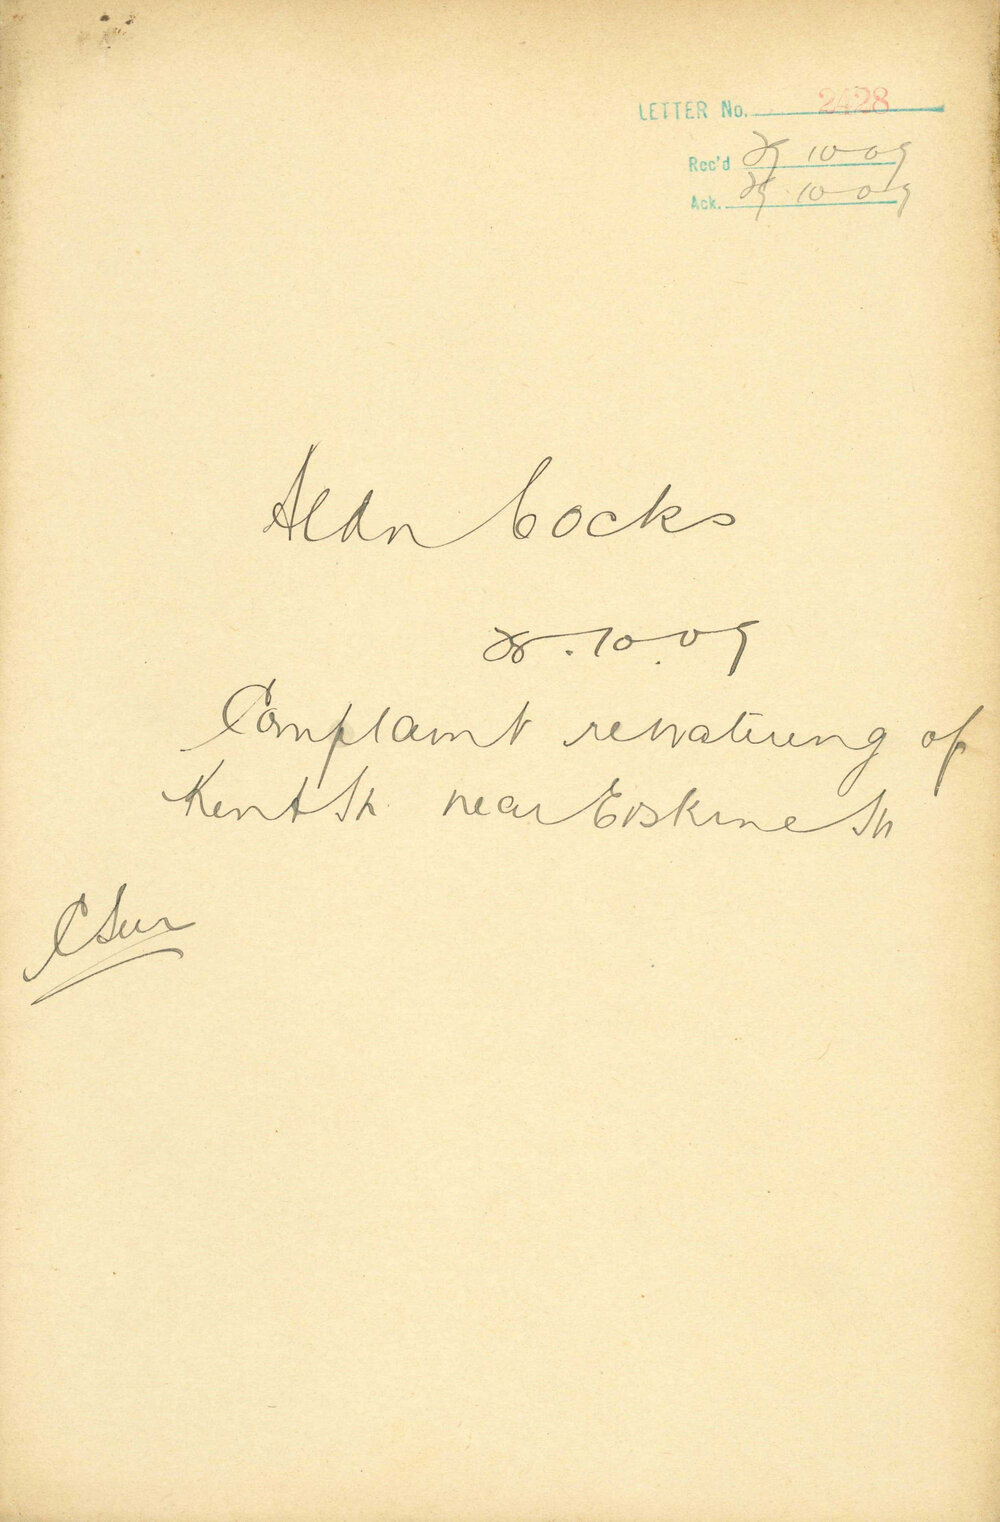 LETTER No. 2428
Rec'd 29 10 09
Ack. 29 10 09
Aldn Cocks
28.10.09
Complaint re watering of
Kent St near Erskine St
C Sur